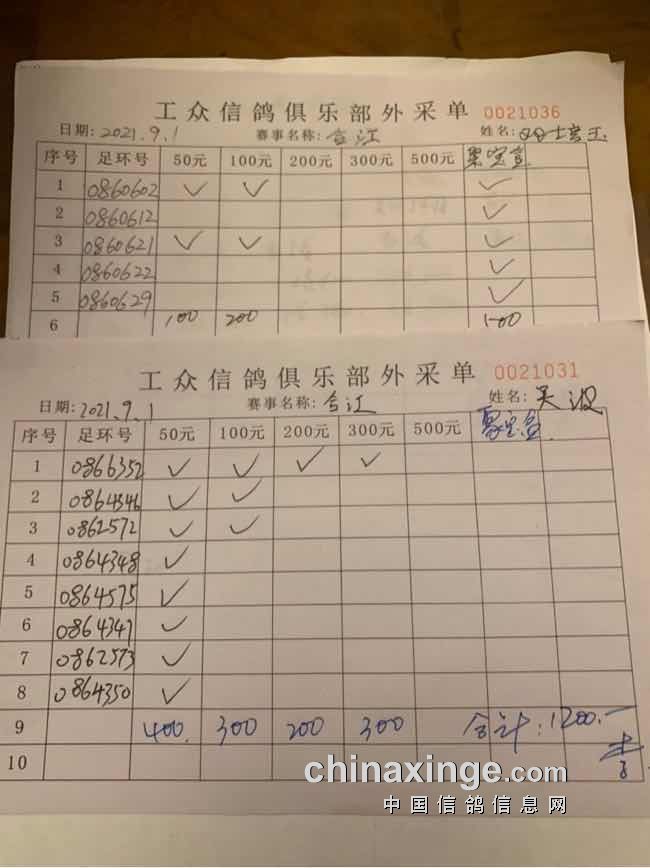 工众信鸽俱乐部外采单 0021036
日期: 2021.9.1 赛事名称: 合江 姓名:
序号 足环号 50元 100元 200元 300元 500元 聚宝盆
1 0860602 ✓ ✓ ✓
2 0860612 ✓
3 0860621 ✓ ✓ ✓
4 0860622 ✓
5 0860629 ✓
6 100 200
工众信鸽俱乐部外采单 0021031
日期: 2021.9.1 赛事名称: 合江 姓名: 吴波
序号 足环号 50元 100元 200元 300元 500元 聚宝盆
1 0866352 ✓ ✓ ✓ ✓
2 0864346 ✓ ✓
3 0862572 ✓ ✓
4 0864348 ✓
5 0864575 ✓
6 0864347 ✓
7 0862573 ✓
8 0864350 ✓
9 400 300 200 300 合计: 1200.-
10
chinaxinge.com
中国信鸽信息网